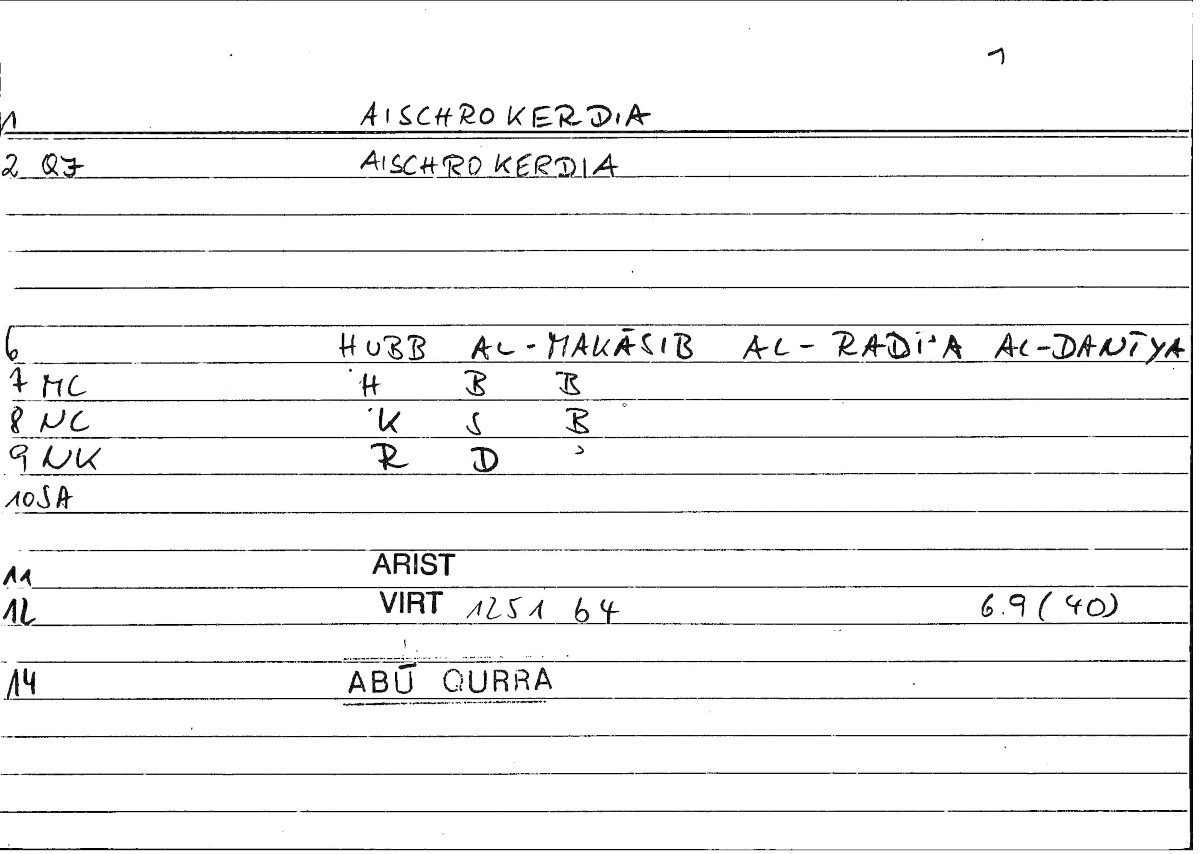 1
1 AISCHROKERDIA
2 QF AISCHROKERDIA
6 HUBB AL-MAKĀSIB AL-RADĪ'A AL-DANĪYA
7 MC H B B
8 NC K S B
9 NK R D '
10 SA
11 ARIST
12 VIRT 1251 b4 6.9 (40)
14 ABŪ QURRA